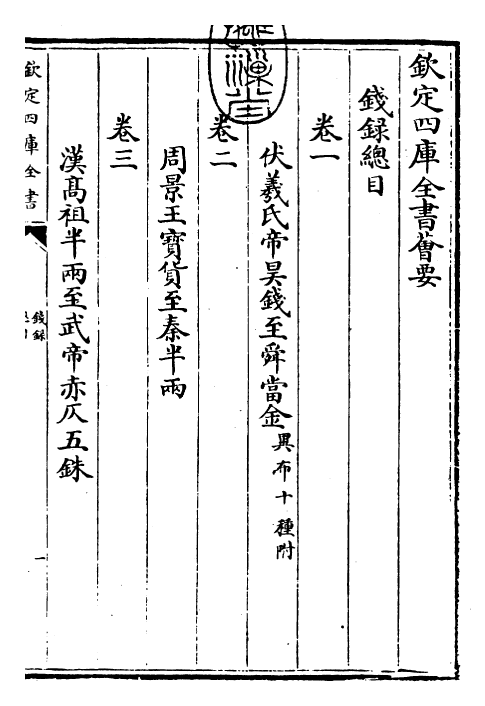 欽定四庫全書薈要
錢録總目
卷一
伏羲氏帝昊錢至舜當金異布十種附
卷二
周景王寳貨至秦半兩
卷三
漢髙祖半兩至武帝赤仄五銖
欽定四庫全書
錢録
一